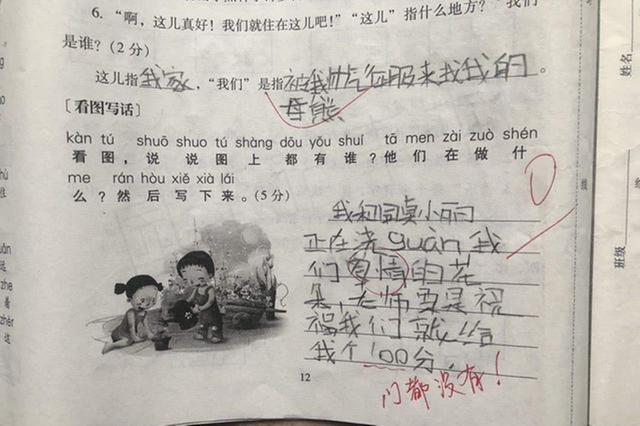 6. “啊，这儿真好！我们就住在这儿吧！”“这儿”指什么地方？“我们”
是谁？(2分)
这儿指我家，“我们”是指被我帅气征服来找我的
母熊。
[看图写话]
kàn tú shuō shuo tú shàng dōu yǒu shuí tā men zài zuò shén
看图，说说图上都有谁？他们在做什
me rán hòu xiě xià lái
么？然后写下来。(5分)
我和同桌小丽
正在浇guàn我
们
的花
朵，老师要是祝
福我们就给
我个100分。
门都没有！
0
12
姓名
班级
线